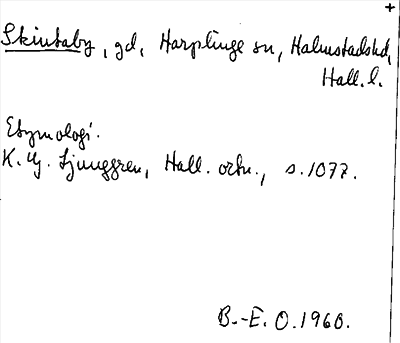 Skintaby, gd, Harplinge sn, Halmstadshd,
Hall. l.
Etymologi.
K. G. Ljunggren, Hall. ortn., s. 1077.
B.-E. O. 1960.